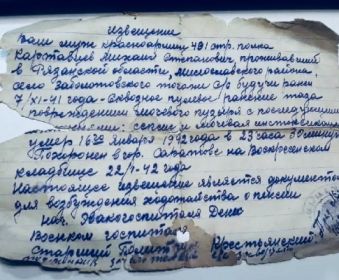 извещение
Ваш муж красноармеец 491 стр. полка
Картавцев Михаил Степанович, проживавший
в Рязанской области, Милославского района,
село Заболотовского с/с будучи ранен
7/XI-41 года - сквозное пулевое ранение таза
с повреждением мочевого пузыря с последующими
сепсис и мочевая интоксикация
умер 16го января 1942 года в 23 часа 30 минут
Похоронен в гор. Саратове на Воскресенском
кладбище 22/I-42 года
Настоящее извещение является документом
для возбуждения ходатайства о пенсии
Нач. Эвакогоспиталя Денк
Военком госпиталя
Старший Политрук Крестьянский